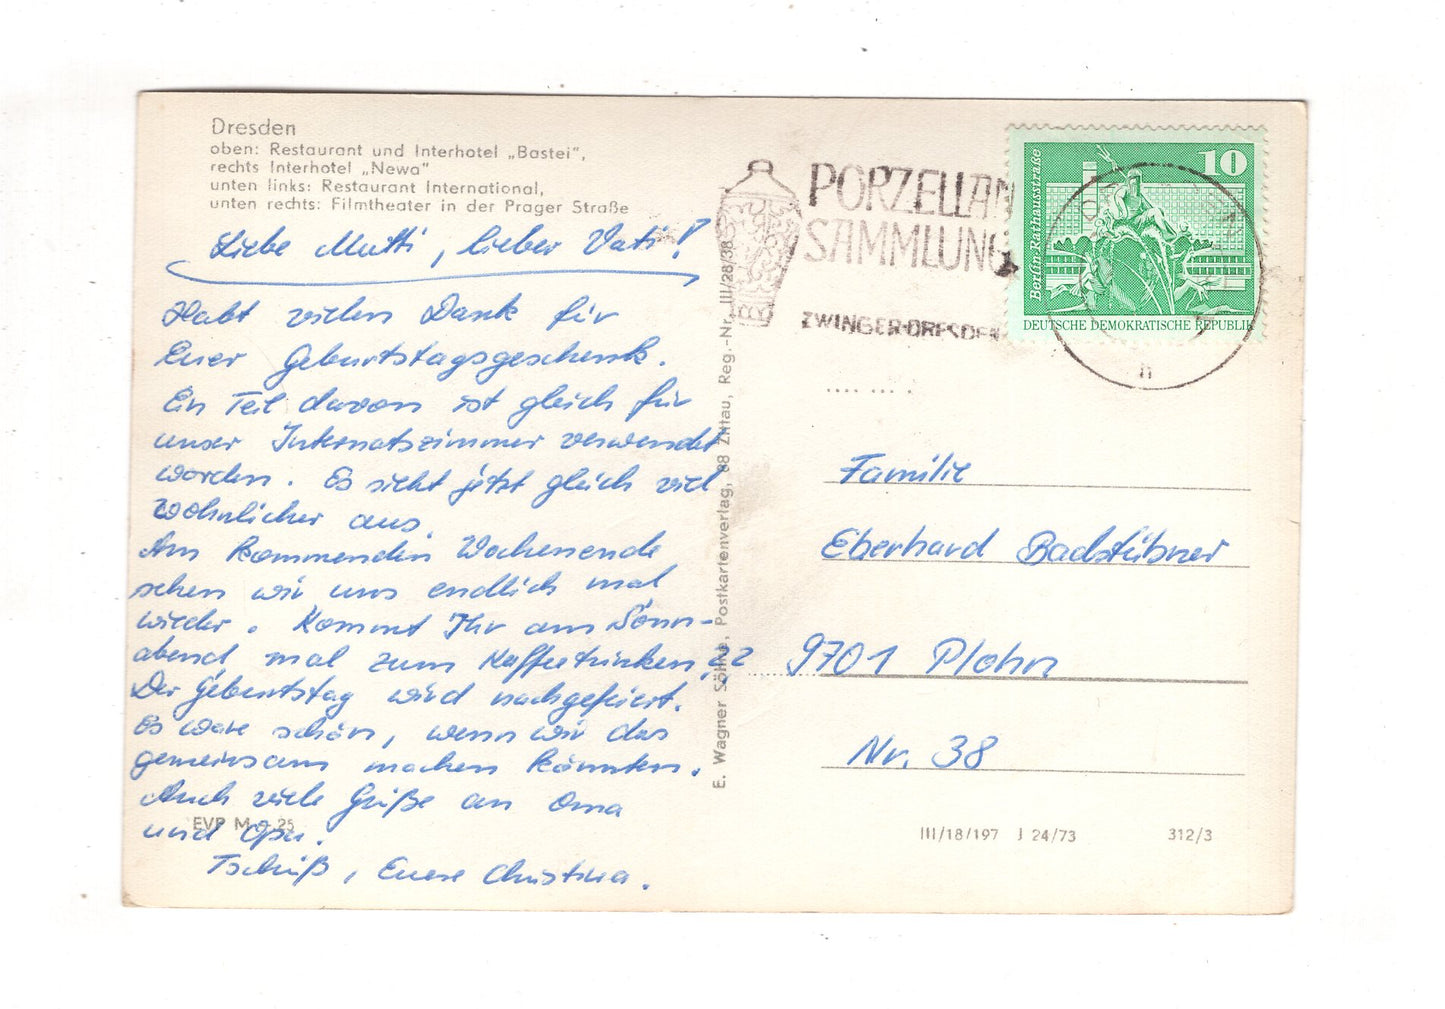 Dresden
oben: Restaurant und Interhotel „Bastei",
rechts Interhotel „Newa"
unten links: Restaurant International,
unten rechts: Filmtheater in der Prager Straße
Liebe Mutti, lieber Vati!
Habt vielen Dank für
Euer Geburtstagsgeschenk.
Ein Teil davon ist gleich für
unser Internatszimmer verwendet
worden. Es sieht jetzt gleich viel
wohnlicher aus.
Am kommenden Wochenende
sehen wir uns endlich mal
wieder. Kommt Ihr am Sonn-
abend mal zum Kaffeetrinken,??
Der Geburtstag wird nachgefeiert.
Es wäre schön, wenn wir das
gemeinsam machen könnten.
Auch viele Grüße an Oma
und Opa.
EVP M 0.25
Tschüß, Eure Christina.
E. Wagner Söhne, Postkartenverlag, 88 Zittau, Reg.-Nr. III/28/38
PORZELLAN
SAMMLUNG
ZWINGER·DRESDEN
10
Berlin·Rathausstraße
DEUTSCHE DEMOKRATISCHE REPUBLIK
n
Familie
Eberhard Badstübner
9701 Plohn
Nr. 38
III/18/197 J 24/73 312/3